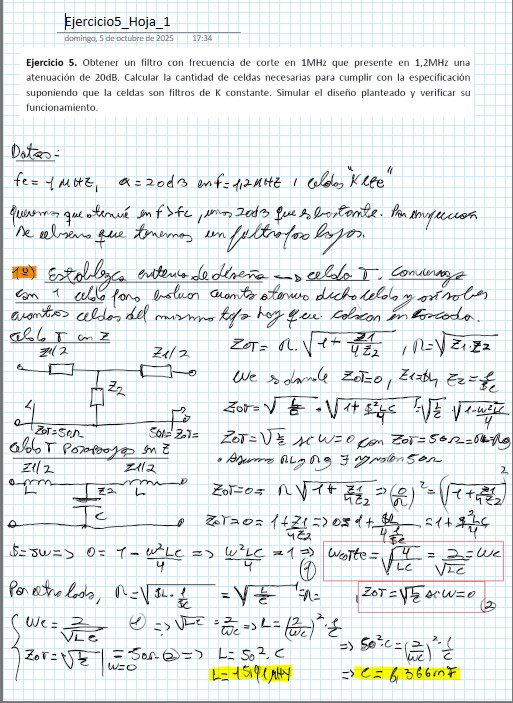 Ejercicio5_Hoja_1
domingo, 5 de octubre de 2025 17:34
Ejercicio 5. Obtener un filtro con frecuencia de corte en 1MHz que presente en 1,2MHz una
atenuación de 20dB. Calcular la cantidad de celdas necesarias para cumplir con la especificación
suponiendo que la celdas son filtros de K constante. Simular el diseño planteado y verificar su
funcionamiento.
Datos:-
fc = 1 MHz, α = 20dB en f = 1,2MHz , celdas "K cte"
queremos que atenúe en f>fc, unos 20dB que es bastante. Por
se observa que tenemos un filtro paso bajos.
1º) criterio de diseño → celda T.
con 1 celda para evaluar cuanto atenua dicha celda y así saber
cuantas celdas del mismo tipo hay que colocar en cascada.
Celda T en Z
Z1/2 Z1/2
Z2
ZoT=50Ω 50Ω=ZoT=
ZoT = R·√(1 + Z1/4Z2) , R=√(Z1·Z2)
wc es donde ZoT=0, Z1=SL, Z2=1/SC
ZoT=√(L/C) · √(1+S²LC/4) = √(L/C) · √(1-w²LC/4)
ZoT=√(L/C) si w=0 con ZoT=50Ω
Celda T paso bajos en Z
Z1/2 Z1/2
L Z2 L
C
ZoT=0= R√(1+Z1/4Z2) => (0/R)² = (√(1+Z1/4Z2))²
ZoT=0= 1+Z1/4Z2 => 0= 1+ = 1+S²LC/4
S=Jw=> 0= 1 - w²LC/4 => w²LC/4 = 1 => (1)
wcorte=√(4/LC) = 2/√LC = wc
Por otro lado, R=√(SL·1/SC) = √(L/C) =R= , ZoT=√(L/C) si w=0 (2)
wc = 2/√LC (1) => √LC = 2/wc => L= (2/wc)²·1/C
ZoT=√(L/C)|w=0 = 50Ω (2) => L= 50²·C
=> 50²·C=(2/wc)²·1/C
L= 15,91 μHy
=> C= 6,366nF